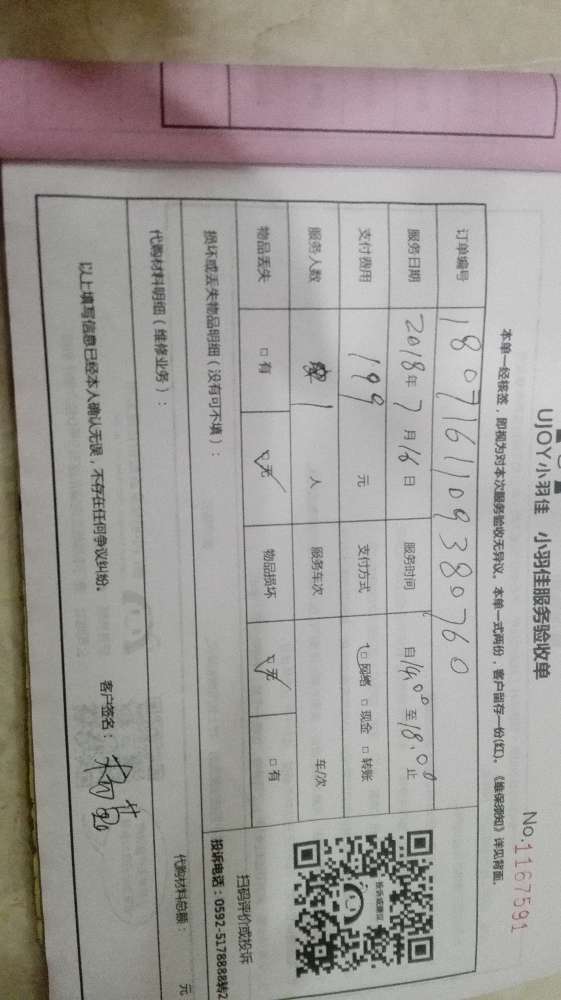 UJOY小羽佳 小羽佳服务验收单
No.1167591
本单一经核签，即视为对本次服务验收无异议。本单一式两份，客户留存一份(红)。《维保须知》详见背面。
订单编号 1807161109380760
服务日期 2018年7月16日 服务时间 自14:00至18:00止
支付费用 199元 支付方式 □网络 □现金 □转账
服务人数 1人 服务车次 车/次
物品丢失 □有 □无 物品损坏 □无 □有
损坏或丢失物品明细（没有可不填）：
扫码评价或投诉
投诉电话：0592-5178888转2
代购材料明细（维修业务）：
代购材料总额： 元
以上填写信息已经本人确认无误，不存在任何争议纠纷。
客户签名：